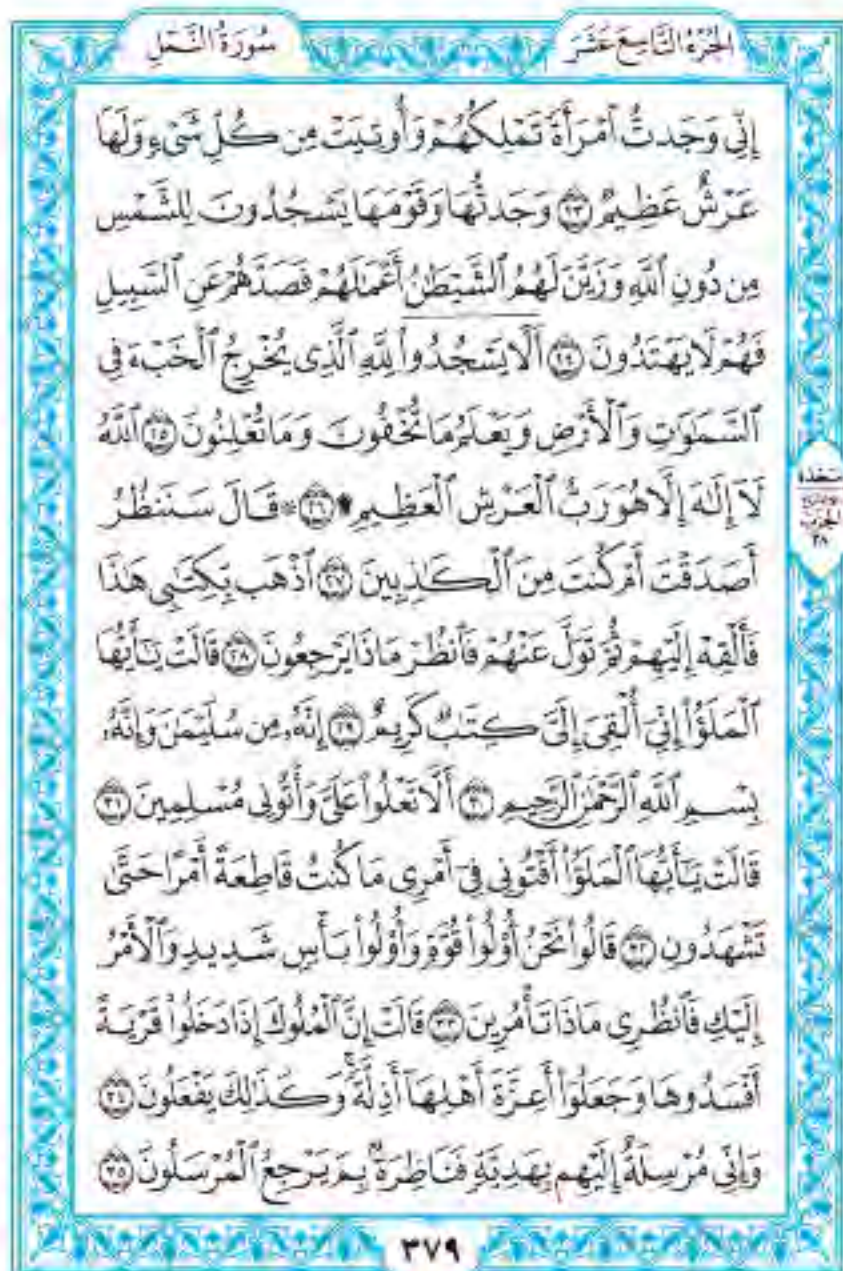 الجُزْءُ التَّاسِعَ عَشَرَ
سُورَةُ النَّمْلِ
إِنِّي وَجَدتُّ ٱمْرَأَةً تَمْلِكُهُمْ وَأُوتِيَتْ مِن كُلِّ شَىْءٍ وَلَهَا
عَرْشٌ عَظِيمٌ ٢٣ وَجَدتُّهَا وَقَوْمَهَا يَسْجُدُونَ لِلشَّمْسِ
مِن دُونِ ٱللَّهِ وَزَيَّنَ لَهُمُ ٱلشَّيْطَٰنُ أَعْمَٰلَهُمْ فَصَدَّهُمْ عَنِ ٱلسَّبِيلِ
فَهُمْ لَا يَهْتَدُونَ ٢٤ أَلَّا يَسْجُدُوا۟ لِلَّهِ ٱلَّذِى يُخْرِجُ ٱلْخَبْءَ فِى
ٱلسَّمَٰوَٰتِ وَٱلْأَرْضِ وَيَعْلَمُ مَا تُخْفُونَ وَمَا تُعْلِنُونَ ٢٥ ٱللَّهُ
لَآ إِلَٰهَ إِلَّا هُوَ رَبُّ ٱلْعَرْشِ ٱلْعَظِيمِ ۩ ٢٦ ۞ قَالَ سَنَنظُرُ
أَصَدَقْتَ أَمْ كُنتَ مِنَ ٱلْكَٰذِبِينَ ٢٧ ٱذْهَب بِّكِتَٰبِى هَٰذَا
فَأَلْقِهْ إِلَيْهِمْ ثُمَّ تَوَلَّ عَنْهُمْ فَٱنظُرْ مَاذَا يَرْجِعُونَ ٢٨ قَالَتْ يَٰٓأَيُّهَا
ٱلْمَلَؤُا۟ إِنِّىٓ أُلْقِىَ إِلَىَّ كِتَٰبٌ كَرِيمٌ ٢٩ إِنَّهُۥ مِن سُلَيْمَٰنَ وَإِنَّهُۥ
بِسْمِ ٱللَّهِ ٱلرَّحْمَٰنِ ٱلرَّحِيمِ ٣٠ أَلَّا تَعْلُوا۟ عَلَىَّ وَأْتُونِى مُسْلِمِينَ ٣١
قَالَتْ يَٰٓأَيُّهَا ٱلْمَلَؤُا۟ أَفْتُونِى فِىٓ أَمْرِى مَا كُنتُ قَاطِعَةً أَمْرًا حَتَّىٰ
تَشْهَدُونِ ٣٢ قَالُوا۟ نَحْنُ أُو۟لُوا۟ قُوَّةٍ وَأُو۟لُوا۟ بَأْسٍ شَدِيدٍ وَٱلْأَمْرُ
إِلَيْكِ فَٱنظُرِى مَاذَا تَأْمُرِينَ ٣٣ قَالَتْ إِنَّ ٱلْمُلُوكَ إِذَا دَخَلُوا۟ قَرْيَةً
أَفْسَدُوهَا وَجَعَلُوٓا۟ أَعِزَّةَ أَهْلِهَآ أَذِلَّةً ۖ وَكَذَٰلِكَ يَفْعَلُونَ ٣٤
وَإِنِّى مُرْسِلَةٌ إِلَيْهِم بِهَدِيَّةٍ فَنَاظِرَةٌۢ بِمَ يَرْجِعُ ٱلْمُرْسَلُونَ ٣٥
سَجْدَة
الحِزْب
٣٨
٣٧٩